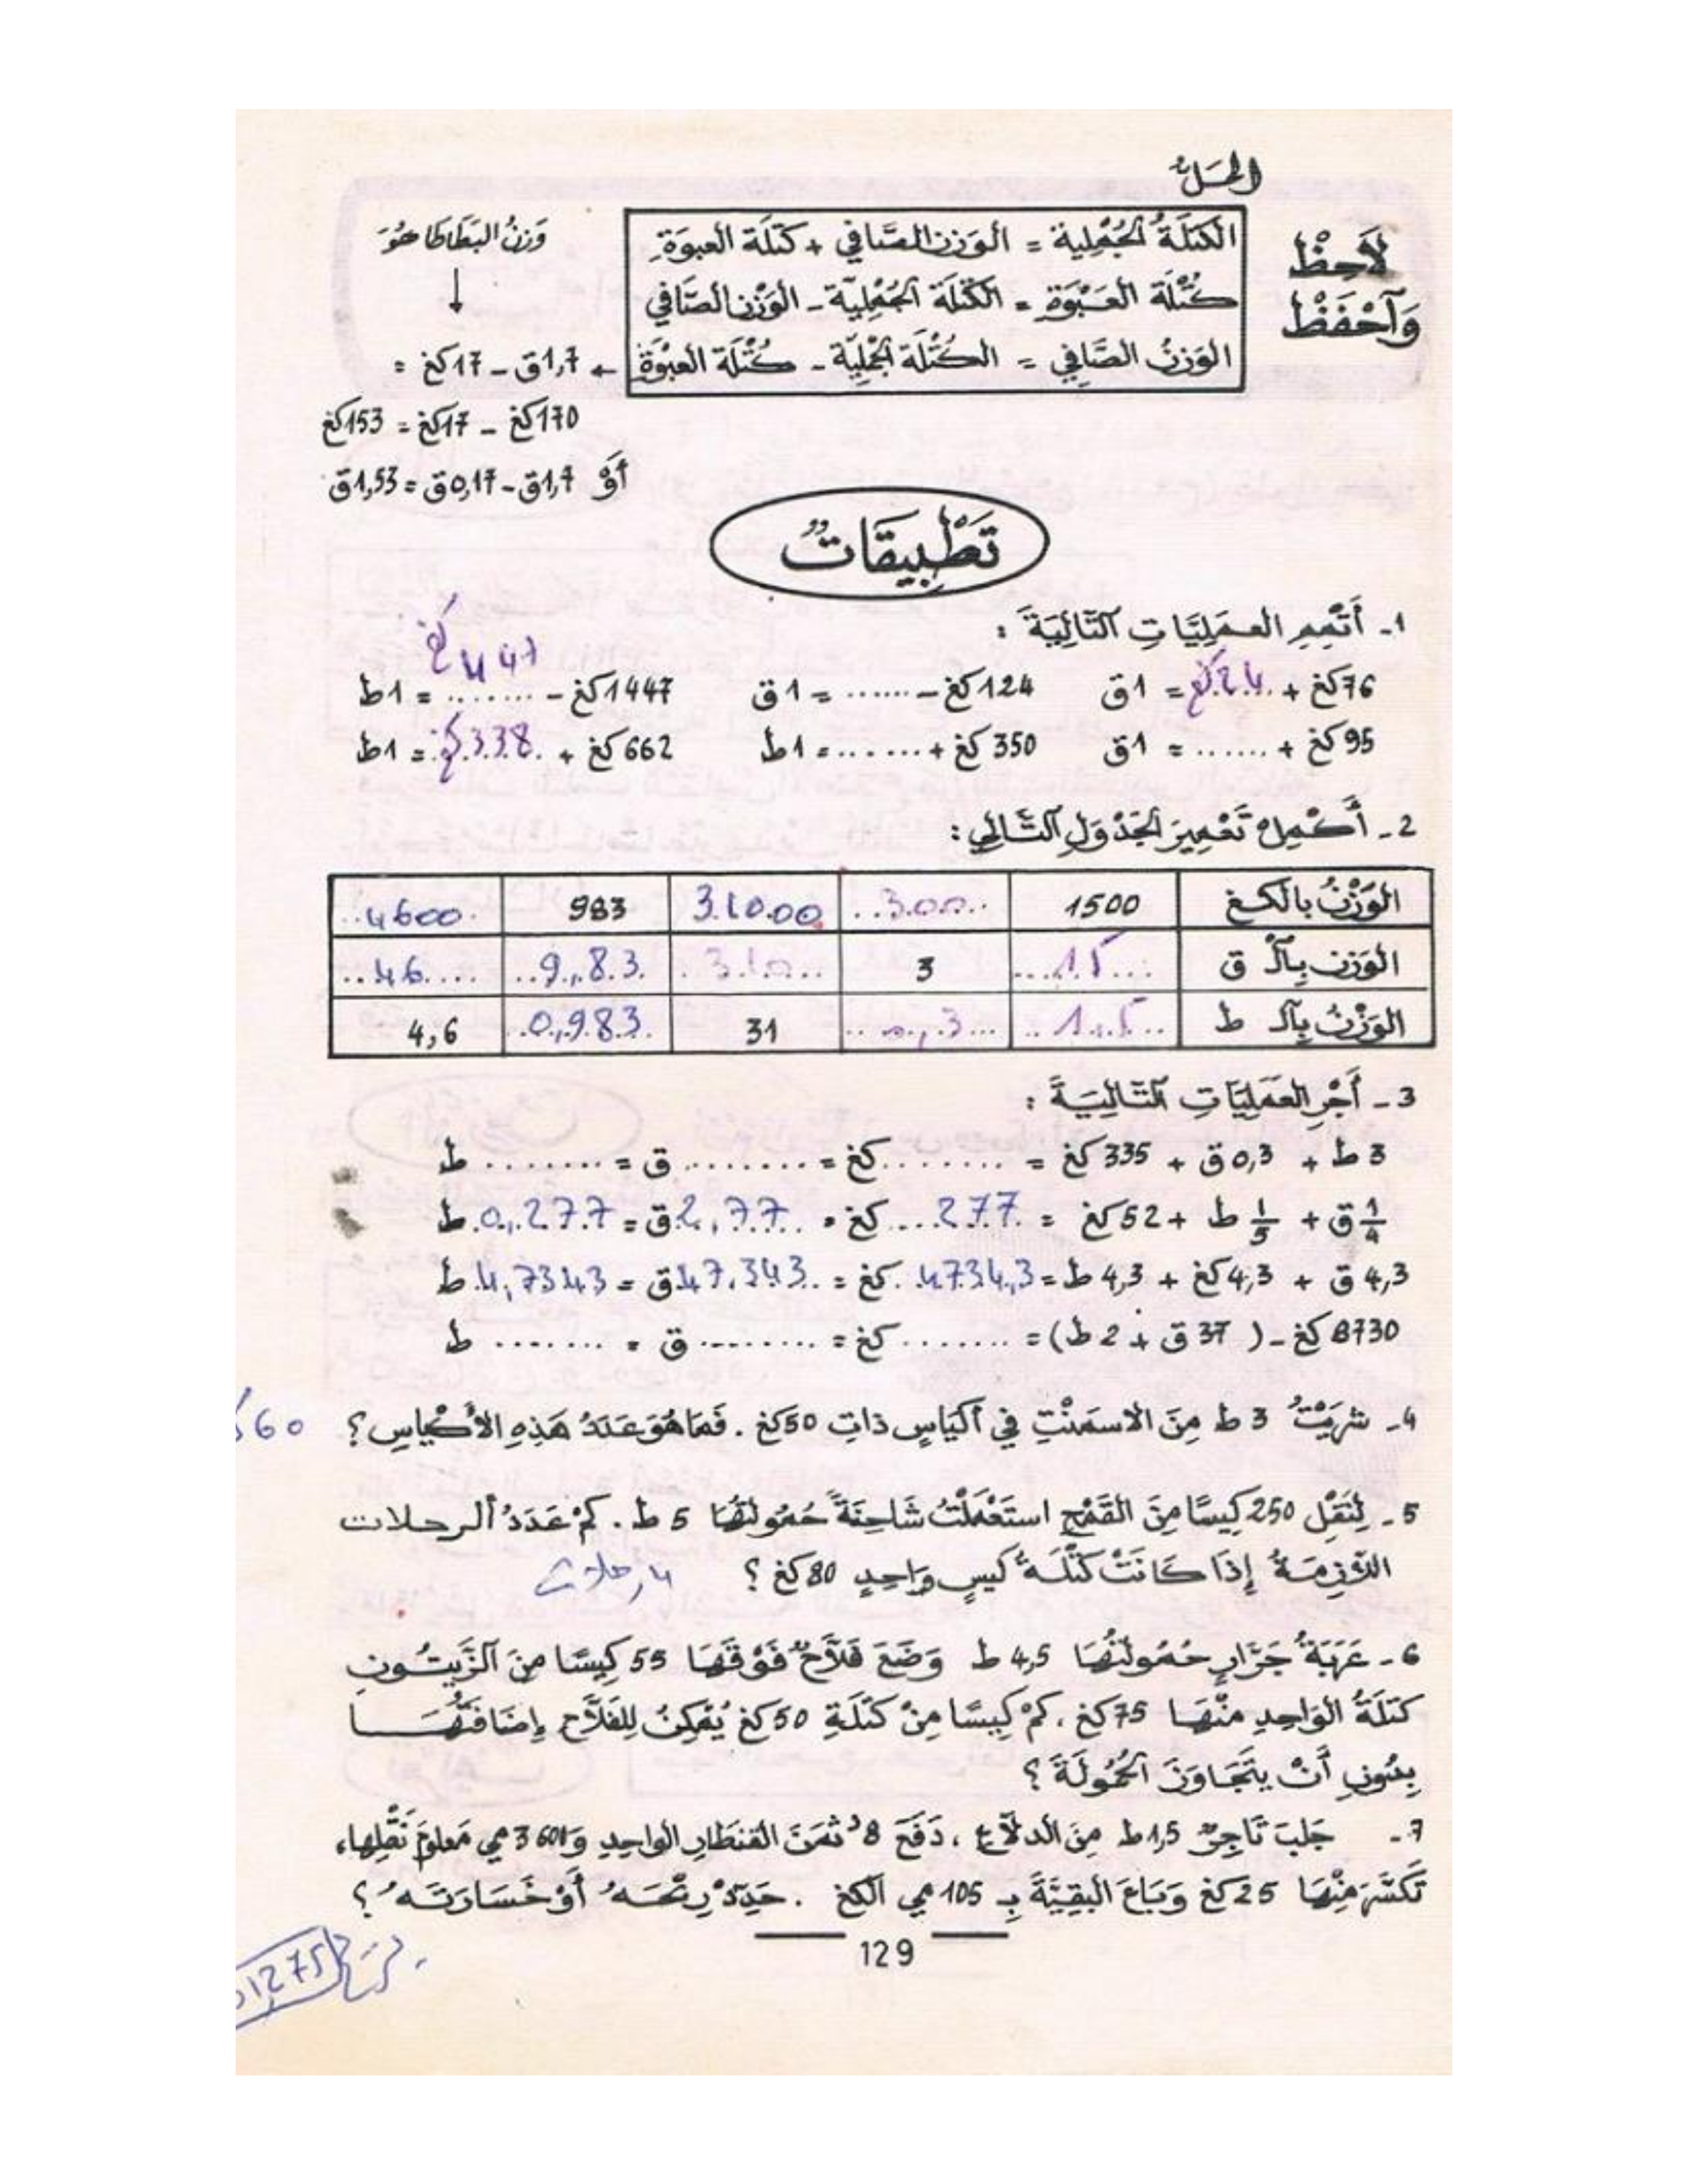 الحَلُّ
لاَحِظْ وَآحْفَظْ
الكتلَةُ الجُمْلِية = الوَزن الصَّافي + كتلَة العبوَةِ
كُتْلَة العَبْوَة = الكتْلَة الجُمْلِيَّة - الوَزْن الصَّافي
الوَزنُ الصَّافِي = الكُتْلَة الجُمْلِيَّة - كُتْلَة العبْوَة ← 1,7ق - 17كغ =
وَزنُ البَطَاطَا هُوَ
↓
170كغ - 17كغ = 153كغ
أَوْ 1,7ق - 0,17ق = 1,53ق
تَطْبِيقَاتٌ
1- أَتْمِمِ العَمَلِيَّاتِ آلتَّالِيَةَ :
76كغ + 24كغ = 1ق 124كغ - ...... = 1ق 1447كغ - 447كغ = 1ط
95كغ + ....... = 1ق 350كغ + ....... = 1ط 662كغ + 338كغ = 1ط
2- أَكْمِلْ تَعْمِيرَ الجَدْوَلِ آلتَّالِي :
الوَزْنُ بالكغ 1500 300 31000 983 4600
الوَزن بِآلـ ق 15 3 310 9,83 46
الوَزْنُ بِآلـ ط 1,5 0,3 31 0,983 4,6
3- أَجْرِ العَمَلِيَّاتِ آلتَّالِيَةَ :
3ط + 0,3ق + 335كغ = ........كغ = ........ق = ........ط
1/4ق + 1/5ط + 52كغ = 277كغ = 2,77ق = 0,277ط
4,3ق + 4,3كغ + 4,3ط = 4734,3كغ = 47,343ق = 4,7343ط
8730كغ - ( 37ق + 2ط) = ........كغ = ........ق = .......ط
4- شرَيْتُ 3ط مِنَ الاسمَنْتِ فِي أكيَاسٍ ذاتِ 50كغ . فَمَا هُوَ عَدَدُ هَذِهِ الأَكْيَاسِ ؟ 60
5- لِنَقْلِ 250 كِيسًا مِنَ القَمْحِ استَعْمَلْتُ شَاحِنَةً حُمُولَتُهَا 5ط . كَمْ عَدَدُ الرحلات
اللاَّزِمَةُ إِذَا كَانَتْ كُتْلَةُ كيسٍ وَاحِدٍ 80كغ ؟ 4 رحلات
6- عَرَبَةُ جَرَّارٍ حُمُولَتُهَا 4,5ط وَضَعَ فَلاَّحٌ فَوْقَهَا 55 كِيسًا مِنَ آلزَّيتُونِ
كتلَةُ الوَاحِدِ مِنْهَا 75كغ . كمْ كِيسًا مِنْ كتلَةِ 50كغ يُمْكِنُ لِلفَلاَّحِ إِضَافَتُهَــا
بِدُونِ أَنْ يتَجَاوَزَ الحُمُولَةَ ؟
7- جَلبَ تَاجِرٌ 1,5ط مِنَ الدلاَّع ، دَفَعَ 8د ثمَنَ القنطَارِ الواحِدِ وَ3600 مي مَعلومَ نَقْلِهَا،
تَكَسَّرَ مِنْهَا 25كغ وَبَاعَ البَقِيَّةَ بِـ 105 مي الكغ . حَدِّدْ رِبْحَهُ أَوْ خَسَارَتَهُ ؟
129